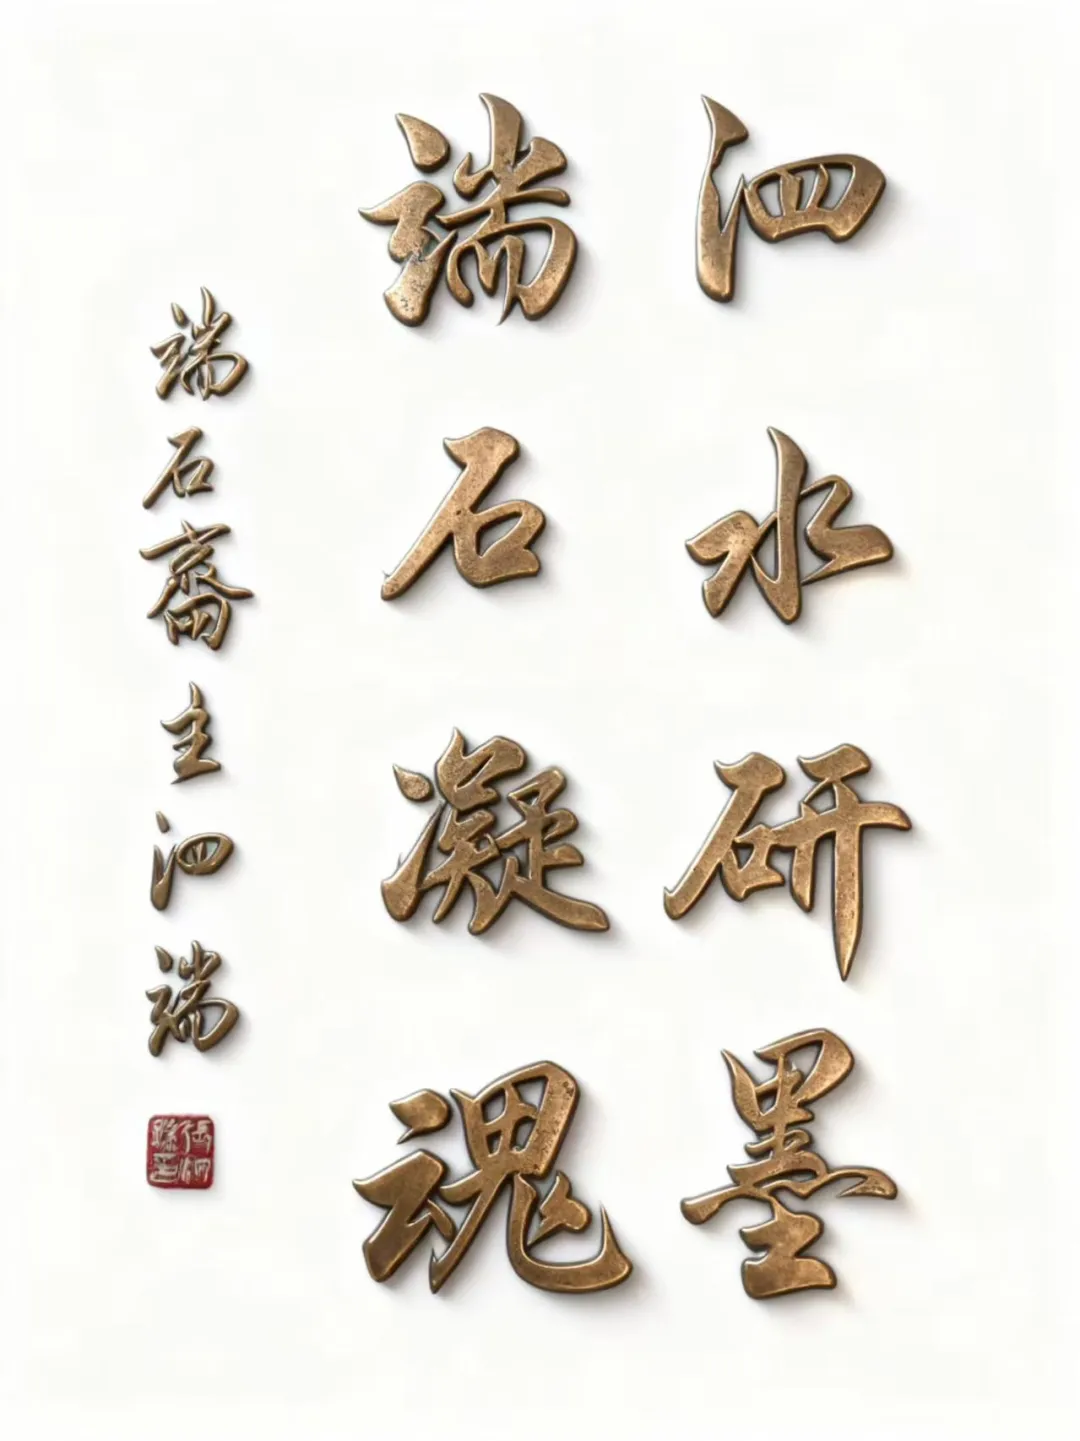 泗水研墨
端石凝魂
端石斋主泗端